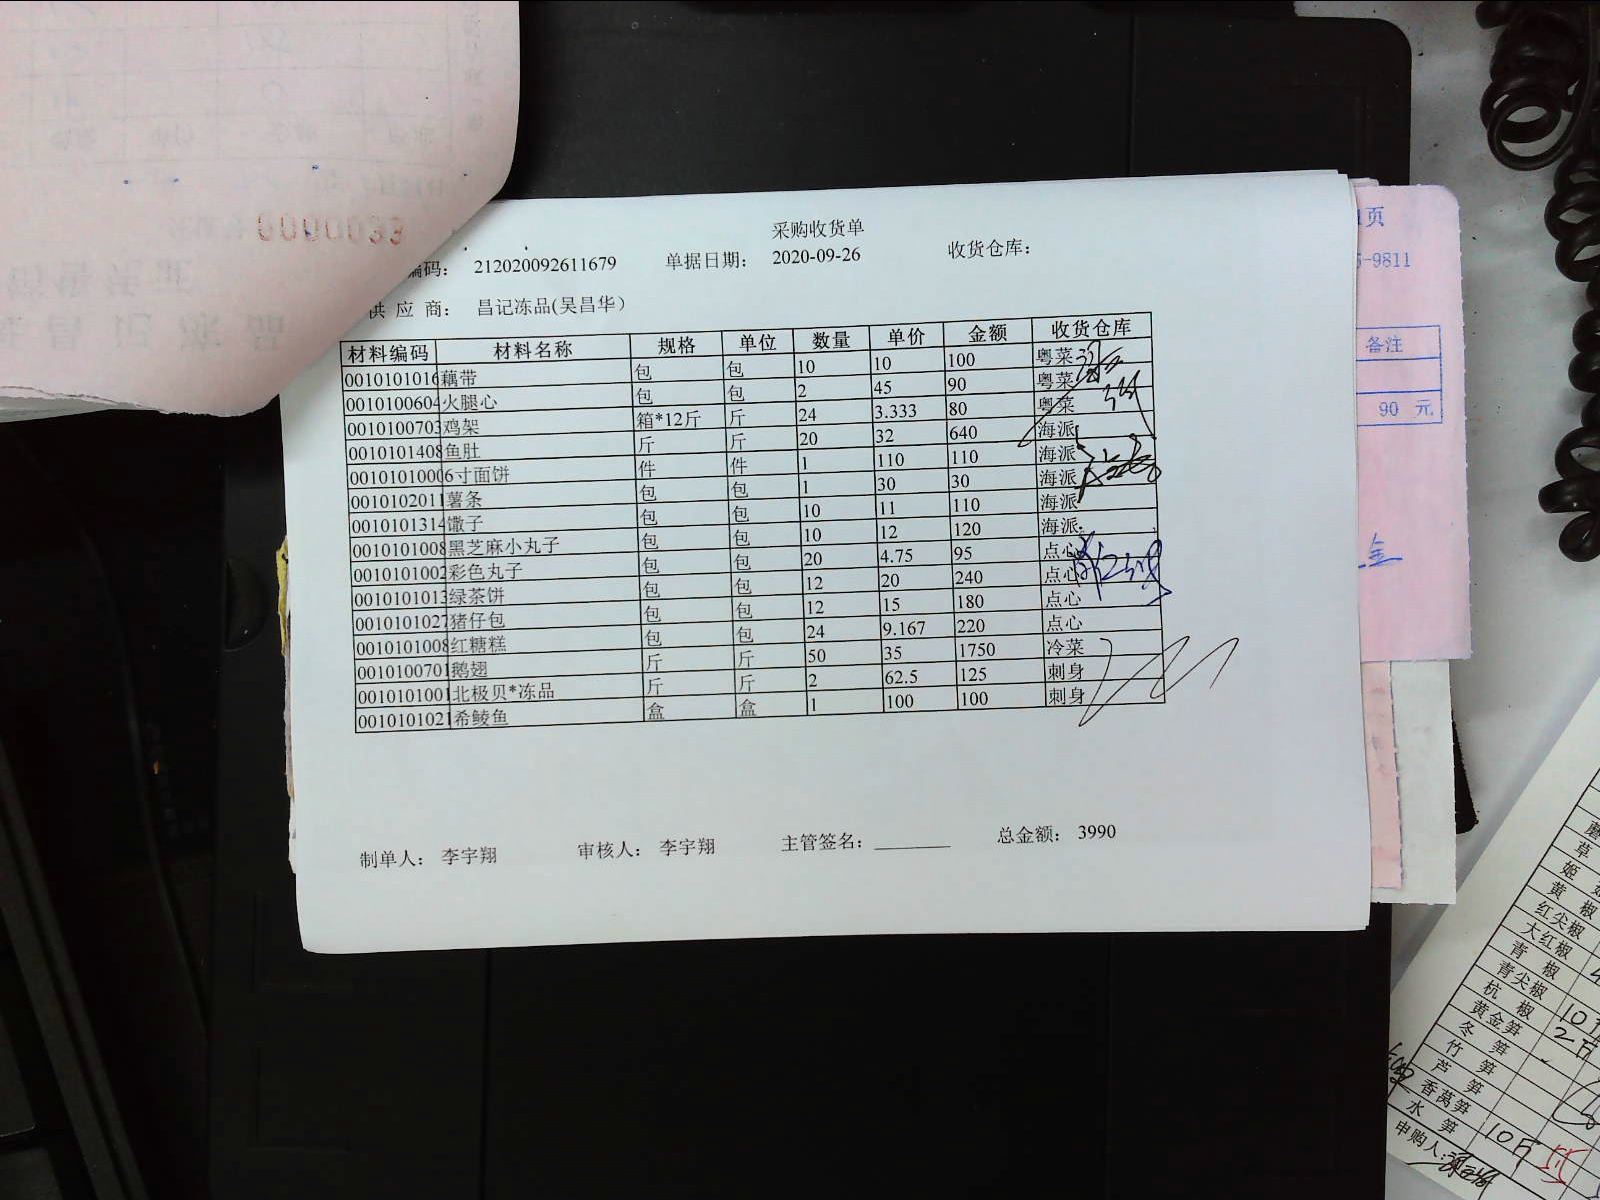 采购收货单
编码： 212020092611679 单据日期： 2020-09-26 收货仓库：
供 应 商： 昌记冻品(吴昌华)
材料编码 材料名称 规格 单位 数量 单价 金额 收货仓库
0010101016 藕带 包 包 10 10 100 粤菜
0010100604 火腿心 包 包 2 45 90 粤菜
0010100703 鸡架 箱*12斤 斤 24 3.333 80 粤菜
0010101408 鱼肚 斤 斤 20 32 640 海派
0010101000 6寸面饼 件 件 1 110 110 海派
0010102011 薯条 包 包 1 30 30 海派
0010101314 馓子 包 包 10 11 110 海派
0010101008 黑芝麻小丸子 包 包 10 12 120 海派
0010101002 彩色丸子 包 包 20 4.75 95 点心
0010101013 绿茶饼 包 包 12 20 240 点心
0010101027 猪仔包 包 包 12 15 180 点心
0010101008 红糖糕 包 包 24 9.167 220 点心
0010100701 鹅翅 斤 斤 50 35 1750 冷菜
0010101001 北极贝*冻品 斤 斤 2 62.5 125 刺身
0010101021 希鲮鱼 盒 盒 1 100 100 刺身
制单人： 李宇翔 审核人： 李宇翔 主管签名： 总金额： 3990
0000033
页
-9811
备注
90 元
草
黄 椒
红尖椒
大红椒
青 椒
青尖椒
杭 椒 10
黄金笋 2斤
冬 笋
竹 笋
芦 笋
香莴笋
水 笋 10斤
申购人：